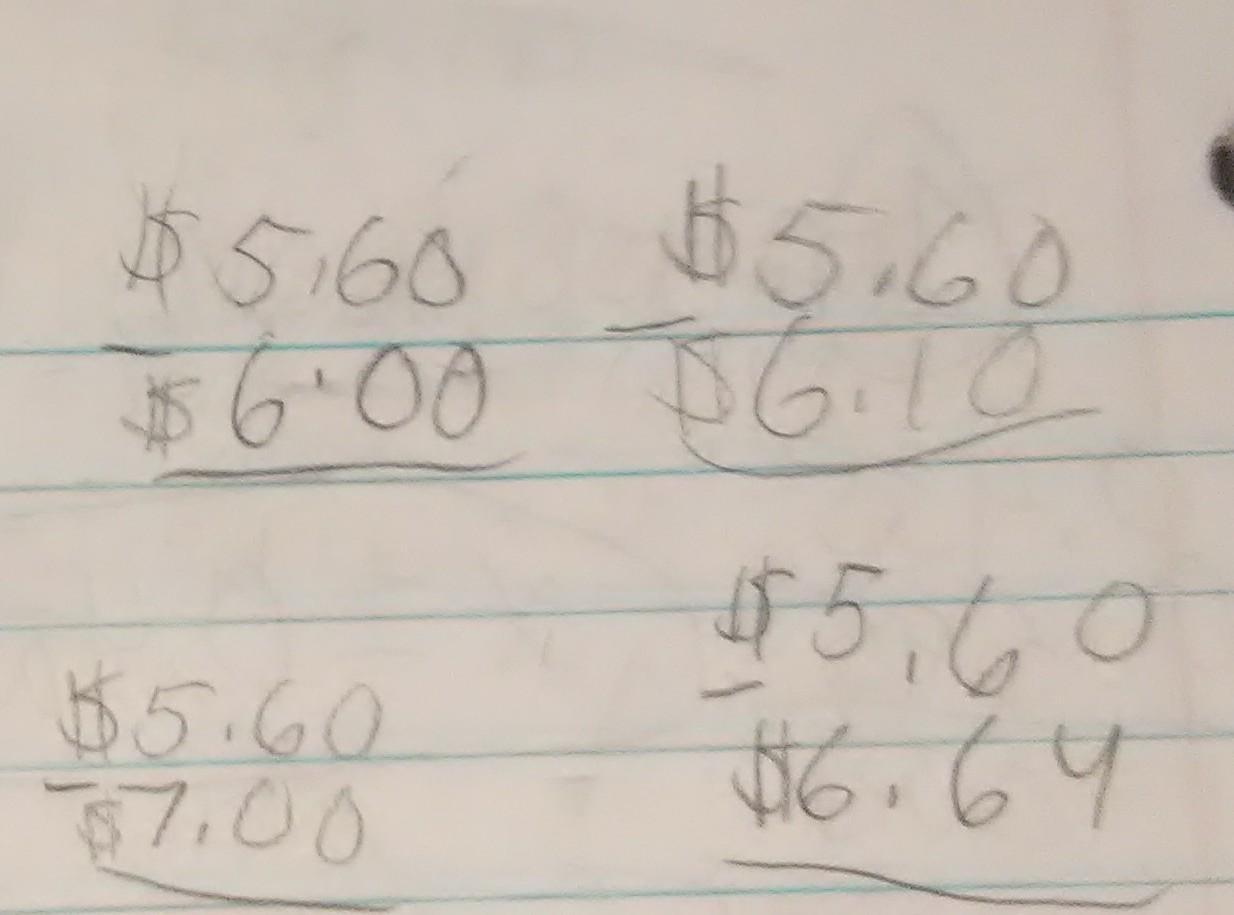 $5.60 $5.60
- $6.00 - $6.10
$5.60 $5.60
- $7.00 - $6.64